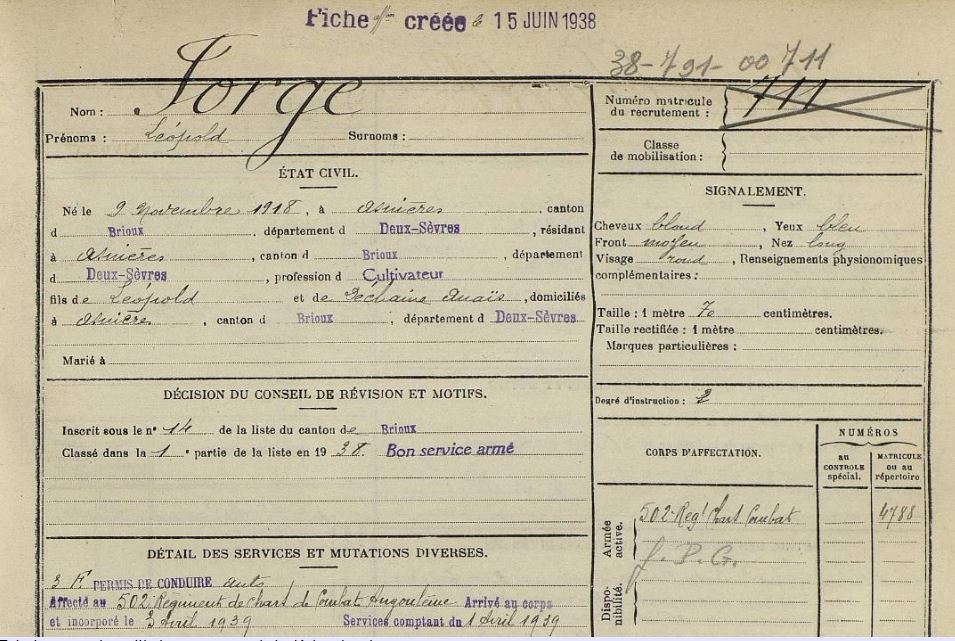 Fiche créée le 15 JUIN 1938
38-791-00 711
Nom : Forge
Prénoms : Léopold Surnoms :
Numéro matricule du recrutement : 711
Classe de mobilisation :
ÉTAT CIVIL.
Né le 9 novembre 1918, à Asnières, canton
d Brioux, département d Deux-Sèvres, résidant
à Asnières, canton d Brioux, département
d Deux-Sèvres, profession d Cultivateur
fils de Léopold et de Déchaine Anaïs, domiciliés
à Asnières, canton d Brioux, département d Deux-Sèvres
Marié à
SIGNALEMENT.
Cheveux blond, Yeux bleu
Front moyen, Nez long
Visage rond, Renseignements physionomiques
complémentaires :
Taille : 1 mètre 70 centimètres.
Taille rectifiée : 1 mètre centimètres.
Marques particulières :
Degré d'instruction : 2
DÉCISION DU CONSEIL DE RÉVISION ET MOTIFS.
Inscrit sous le n° 14 de la liste du canton de Brioux
Classé dans la 1e partie de la liste en 1938. Bon service armé
CORPS D'AFFECTATION.
NUMÉROS
au CONTROLE spécial.
MATRICULE ou au répertoire
Armée active.
502 Regt Chart Combat 4788
J. P. G.
Disponibilité.
DÉTAIL DES SERVICES ET MUTATIONS DIVERSES.
PERMIS DE CONDUIRE auto
Affecté au 502 Régiment de Chart de Combat Angoulême Arrivé au corps
et incorporé le 3 Avril 1939 Services comptant du 1 Avril 1939